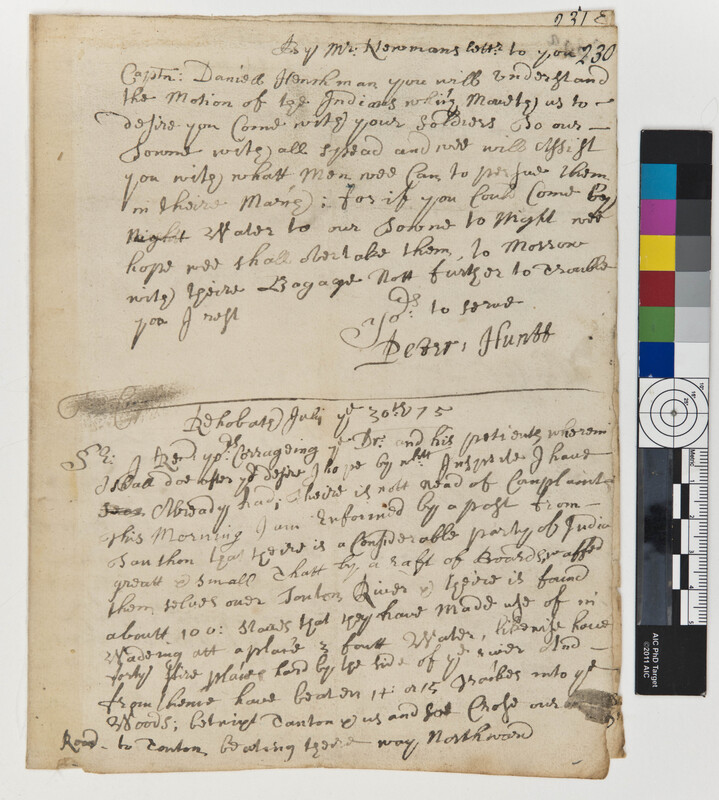 231
By Mr: Newmans lettr: to you 230
Captn: Daniell Henchman you will understand
the Motion of the Indians which Moveth us to
desire you Come with your Soldiers To our
Towne with all spead and wee will Assist
you with whatt Men wee Can, to persue them
in theire March; for if you Could Come by
Night Water to our Towne to Night wee
hope wee shall overtake them, to Morrow
with theire Bagage Nott further to Trouble
you I rest
Yors: to serve
Peter: Huntt
Rehoboth July ye 30th 75
Sr: I Recd yors: Corrageing ye Dr. and his patients wherein
I shall doe after ye desire I hope by whatt I have
Already had; theire is nott nead of Complaint
This Morning I am Informed by a post from
Taunton that theire is a Considerable party of India
greatt & Small Thatt by a raft of Boards waffed
them selves over Tonton River & theire is found
aboutt 100: staves that they have Made use of in
Wadeing att a place 3 foutt Water, likewise have
forty fire places hard by the side of ye River And
from thence have beaten 14: or 15 Trackes into ye
Woods; betwixt Tanton & us and soe Crose our
Road to Tonton bearing theire way Northward